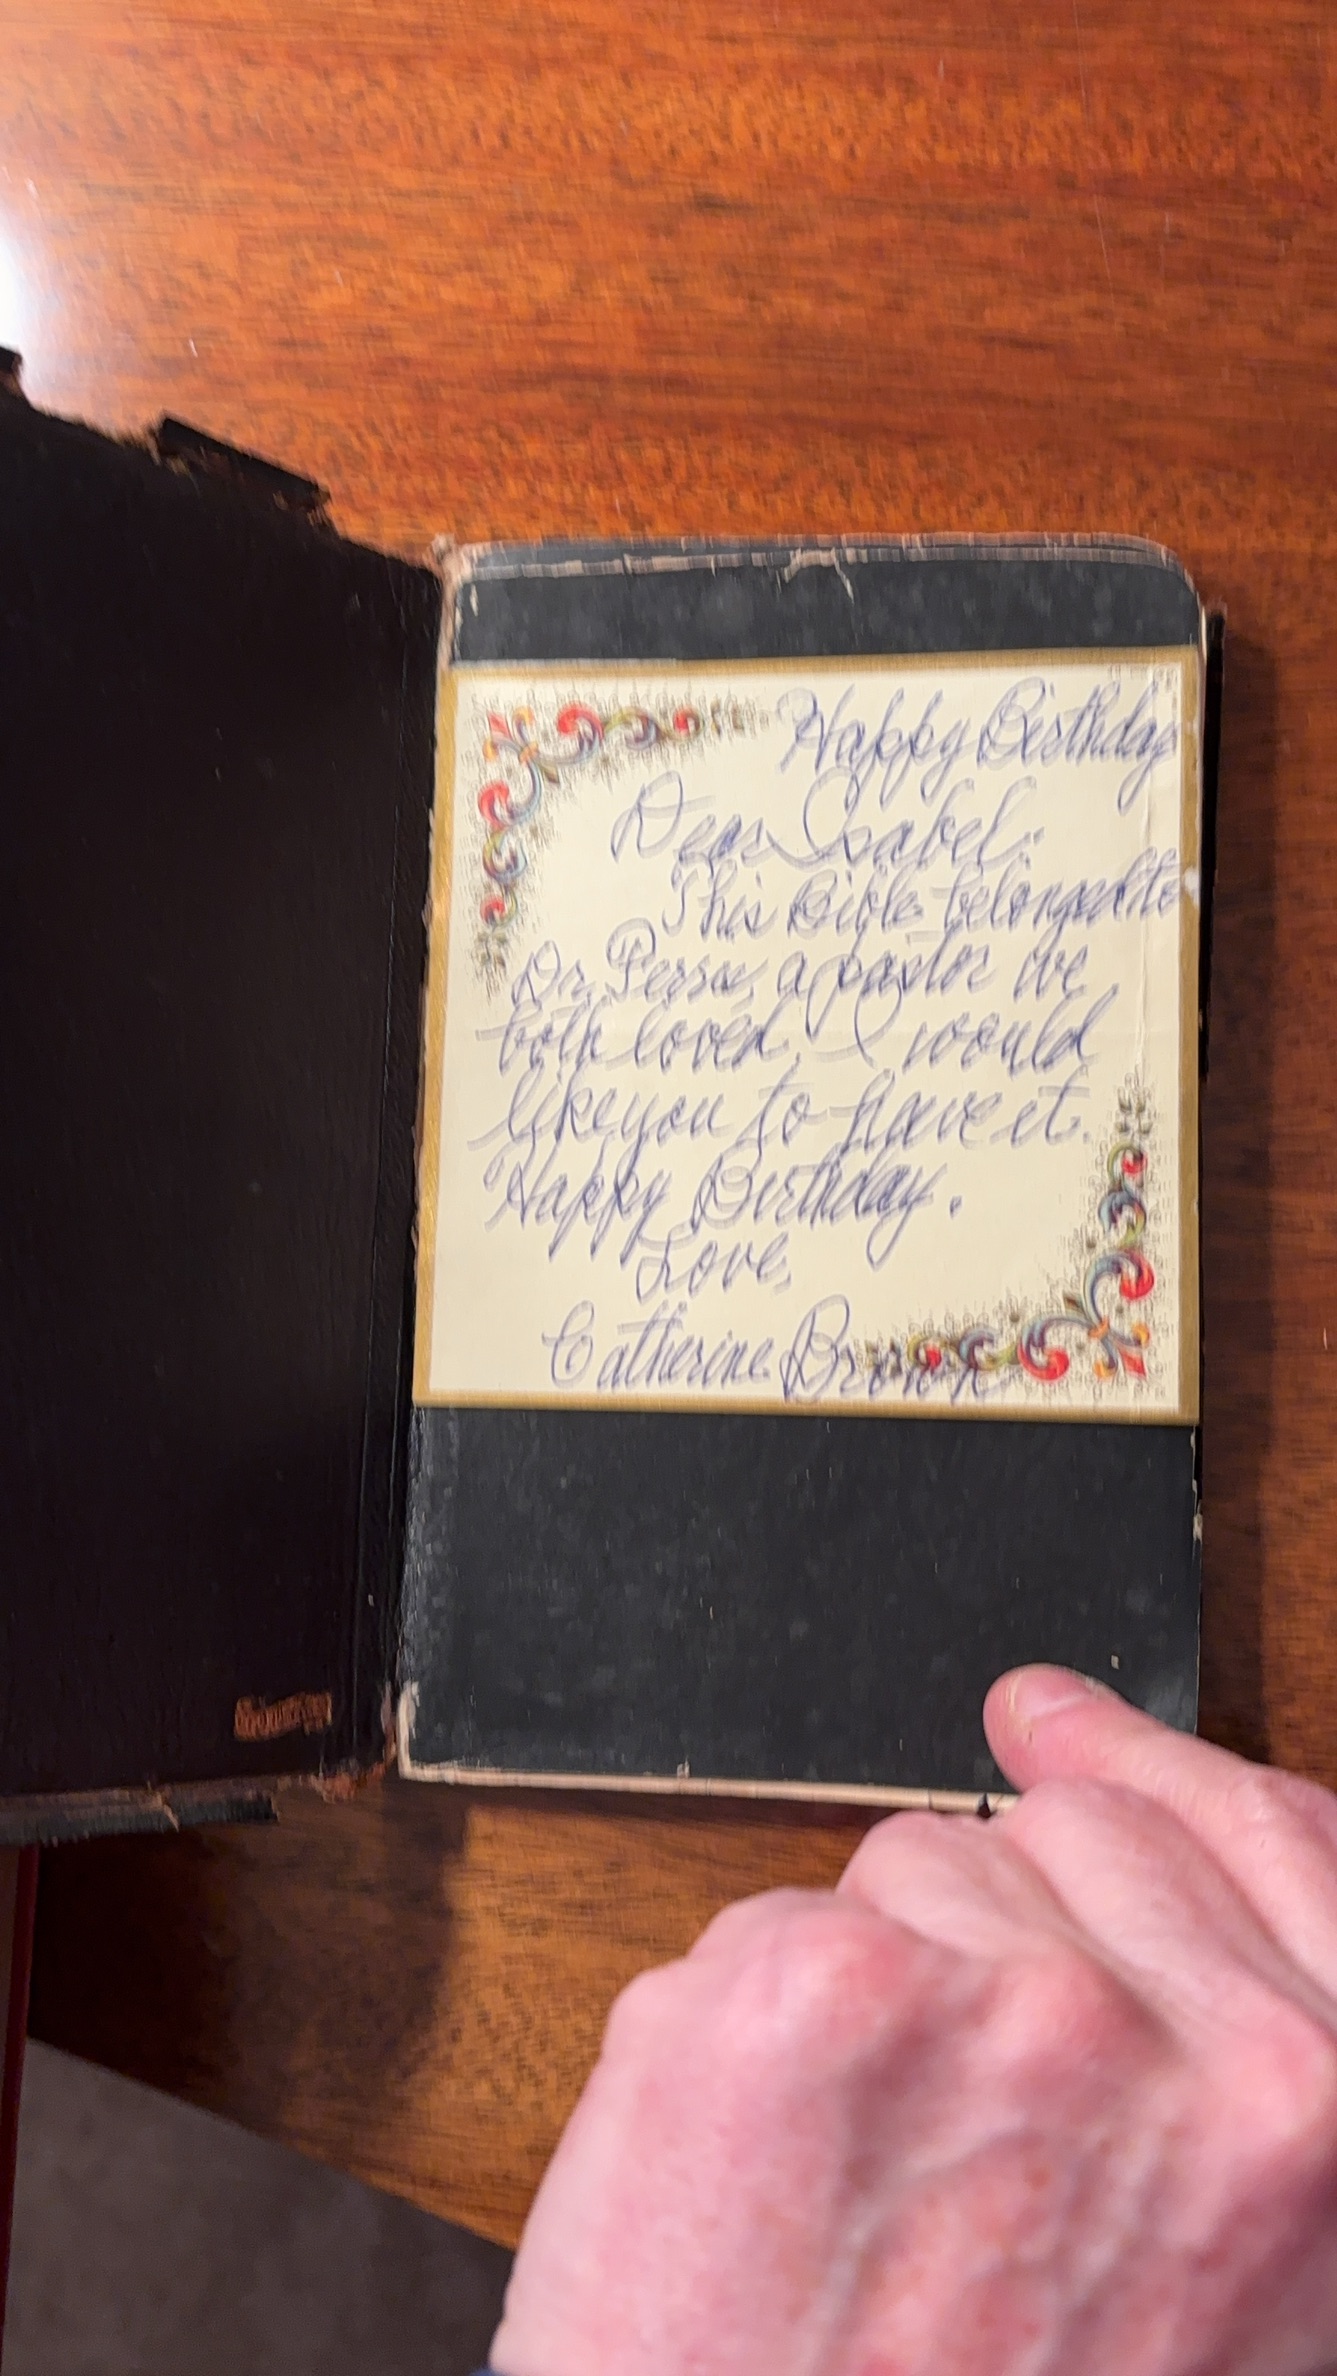 Happy Birthday
Dear Isabel:
This Bible belonged to
Dr. a pastor we
both loved. I would
like you to have it.
Happy Birthday.
Love,
Catherine Brown